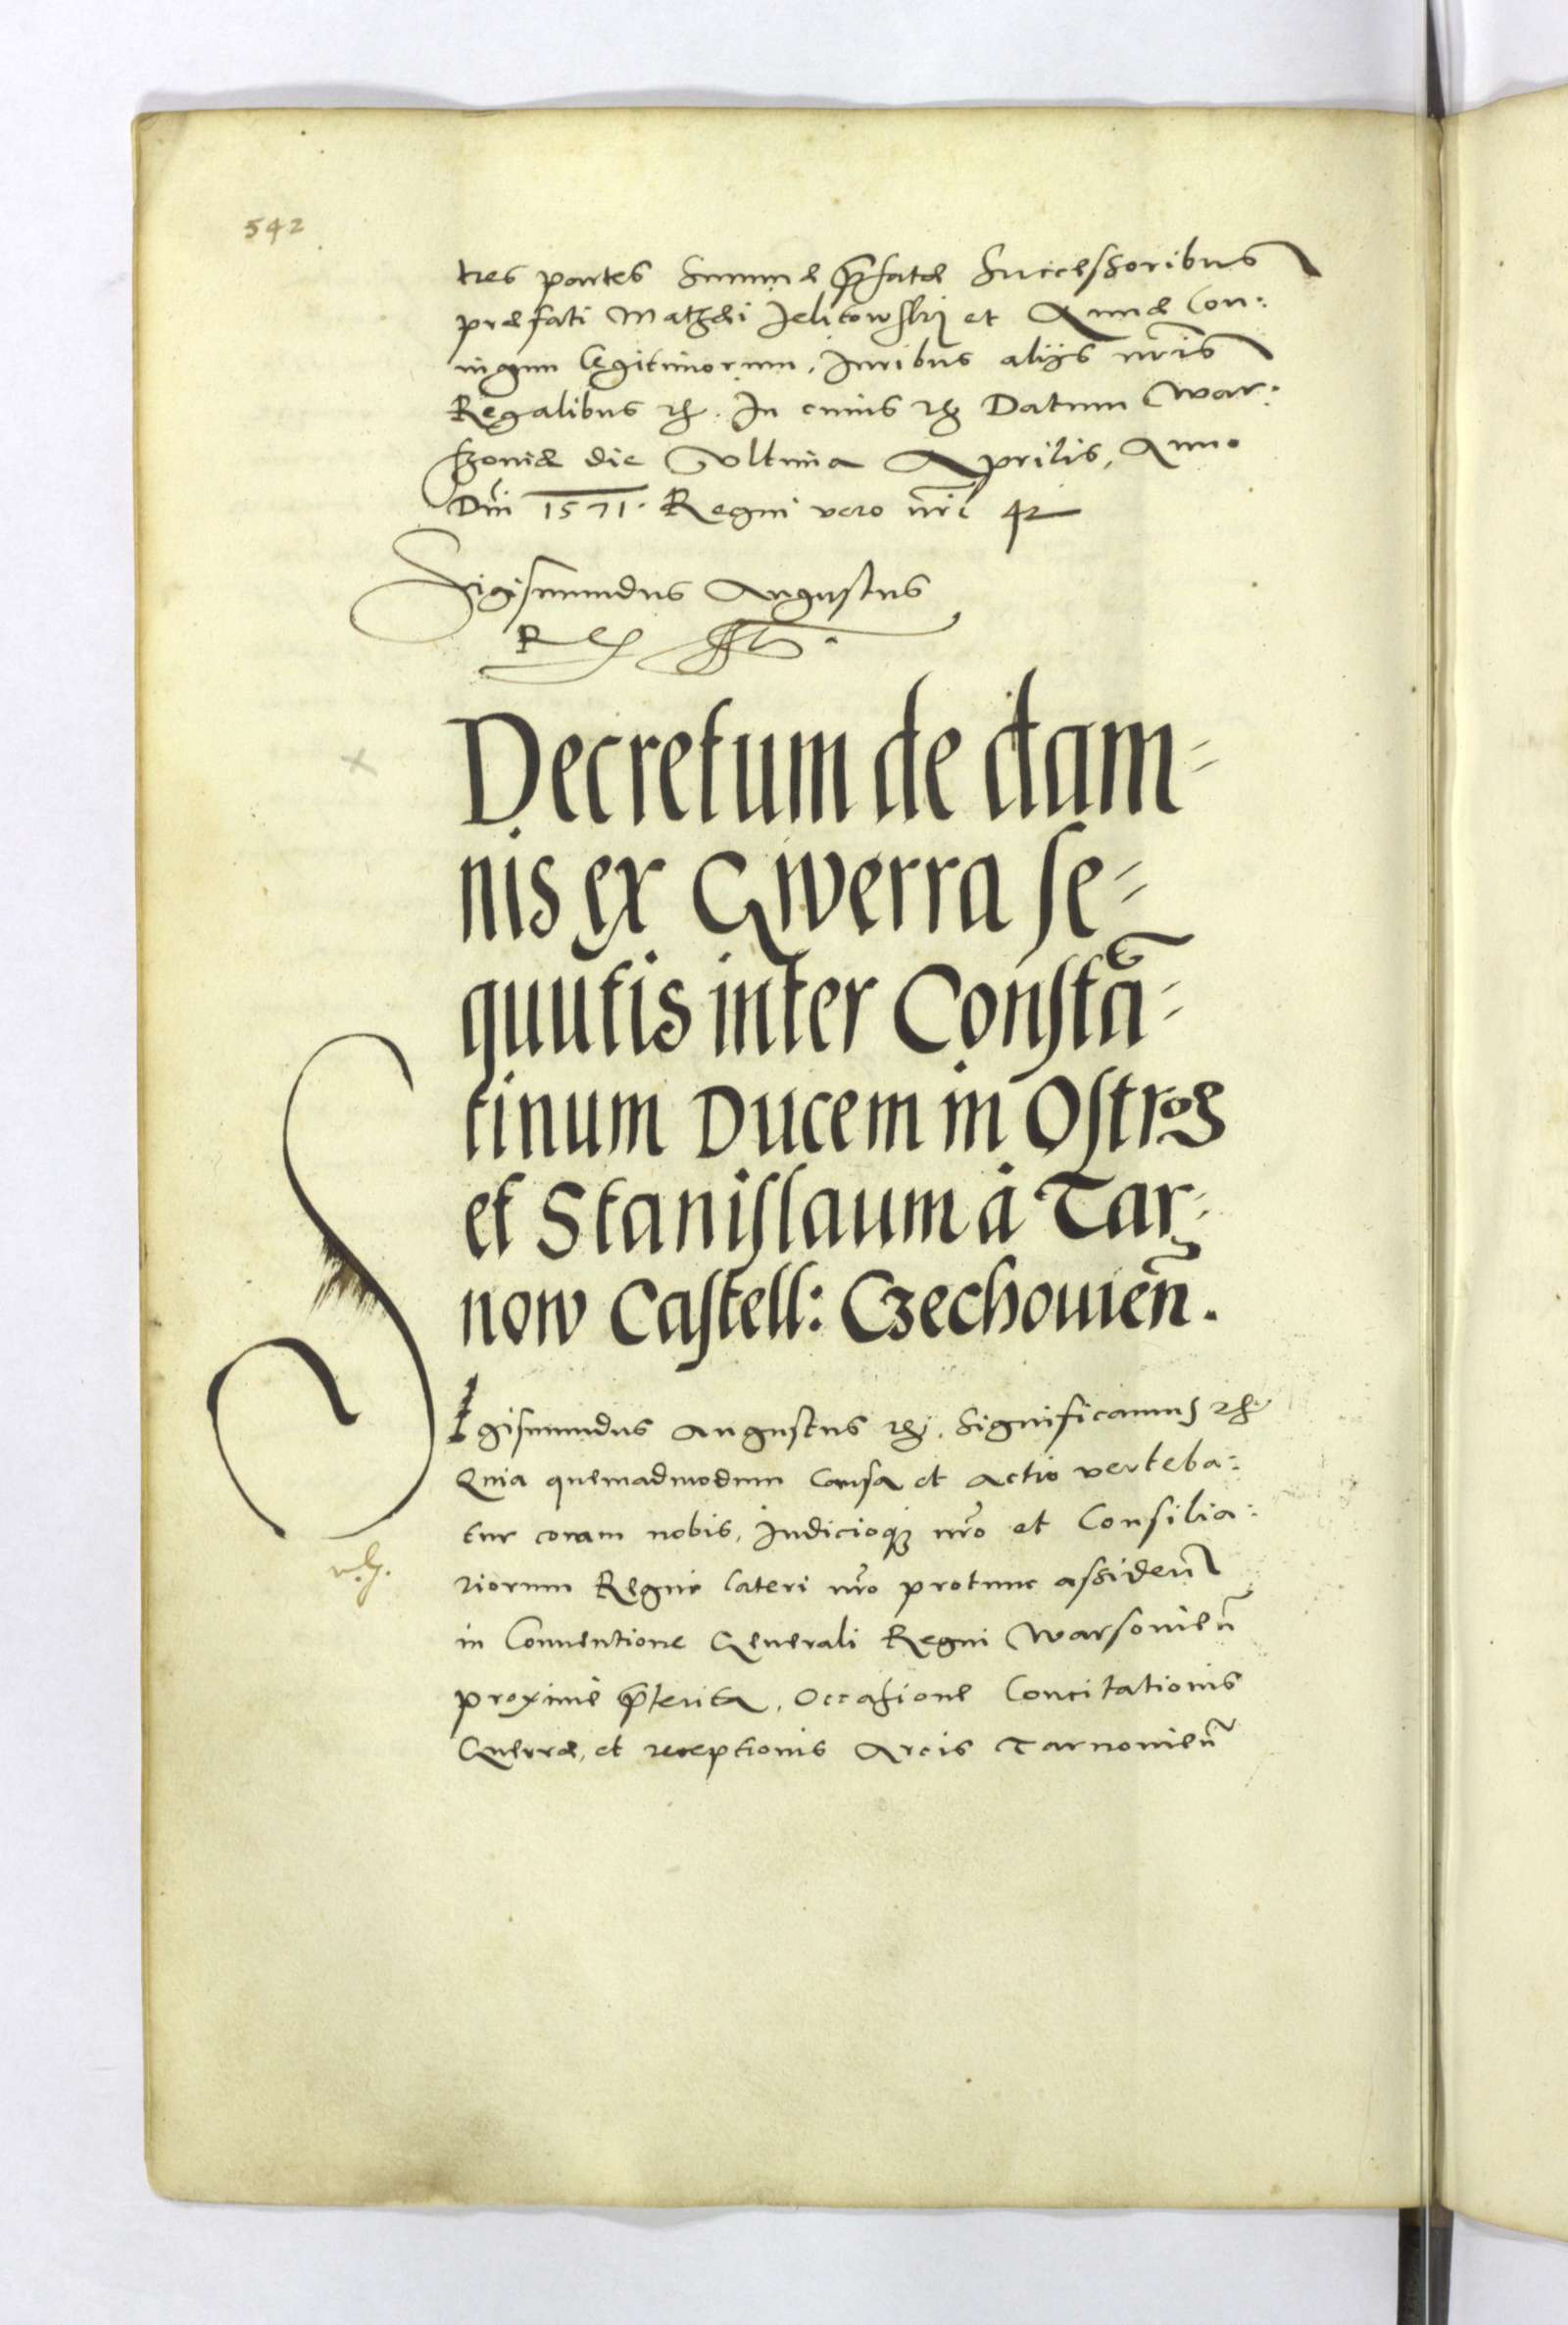 542
tres partes Summæ p̄fatæ Successoribus
præfati Mathæi Jelitowskij et Annæ Con:
iugum legitimorum, Iuribus alijs nr̄is
Regalibus etc. In cuius rei Datum War:
szouiæ die Vltima Aprilis, Anno
Dn̄i 1571. Regni vero nr̄i 42
Sigismundus Augustus
Rex
Decretum de dam=
nis ex Gwerra se=
quutis inter Constā=
tinum Ducem in Ostrog
et Stanislaum à Tar=
now Castell: Czechouien̄.
SIgismundus Augustus etc. Significamus etc.
Quia quemadmodum Causa et actio verteba:
tur coram nobis, Iudicioq3 nr̄o et Consilia:
riorum Regni lateri nr̄o protunc assiden̄
in Conuentione Generali Regni Warsouien̄
proximè p̄terita, Occasione Concitationis
Guerræ, et receptionis Arcis Tarnouien̄